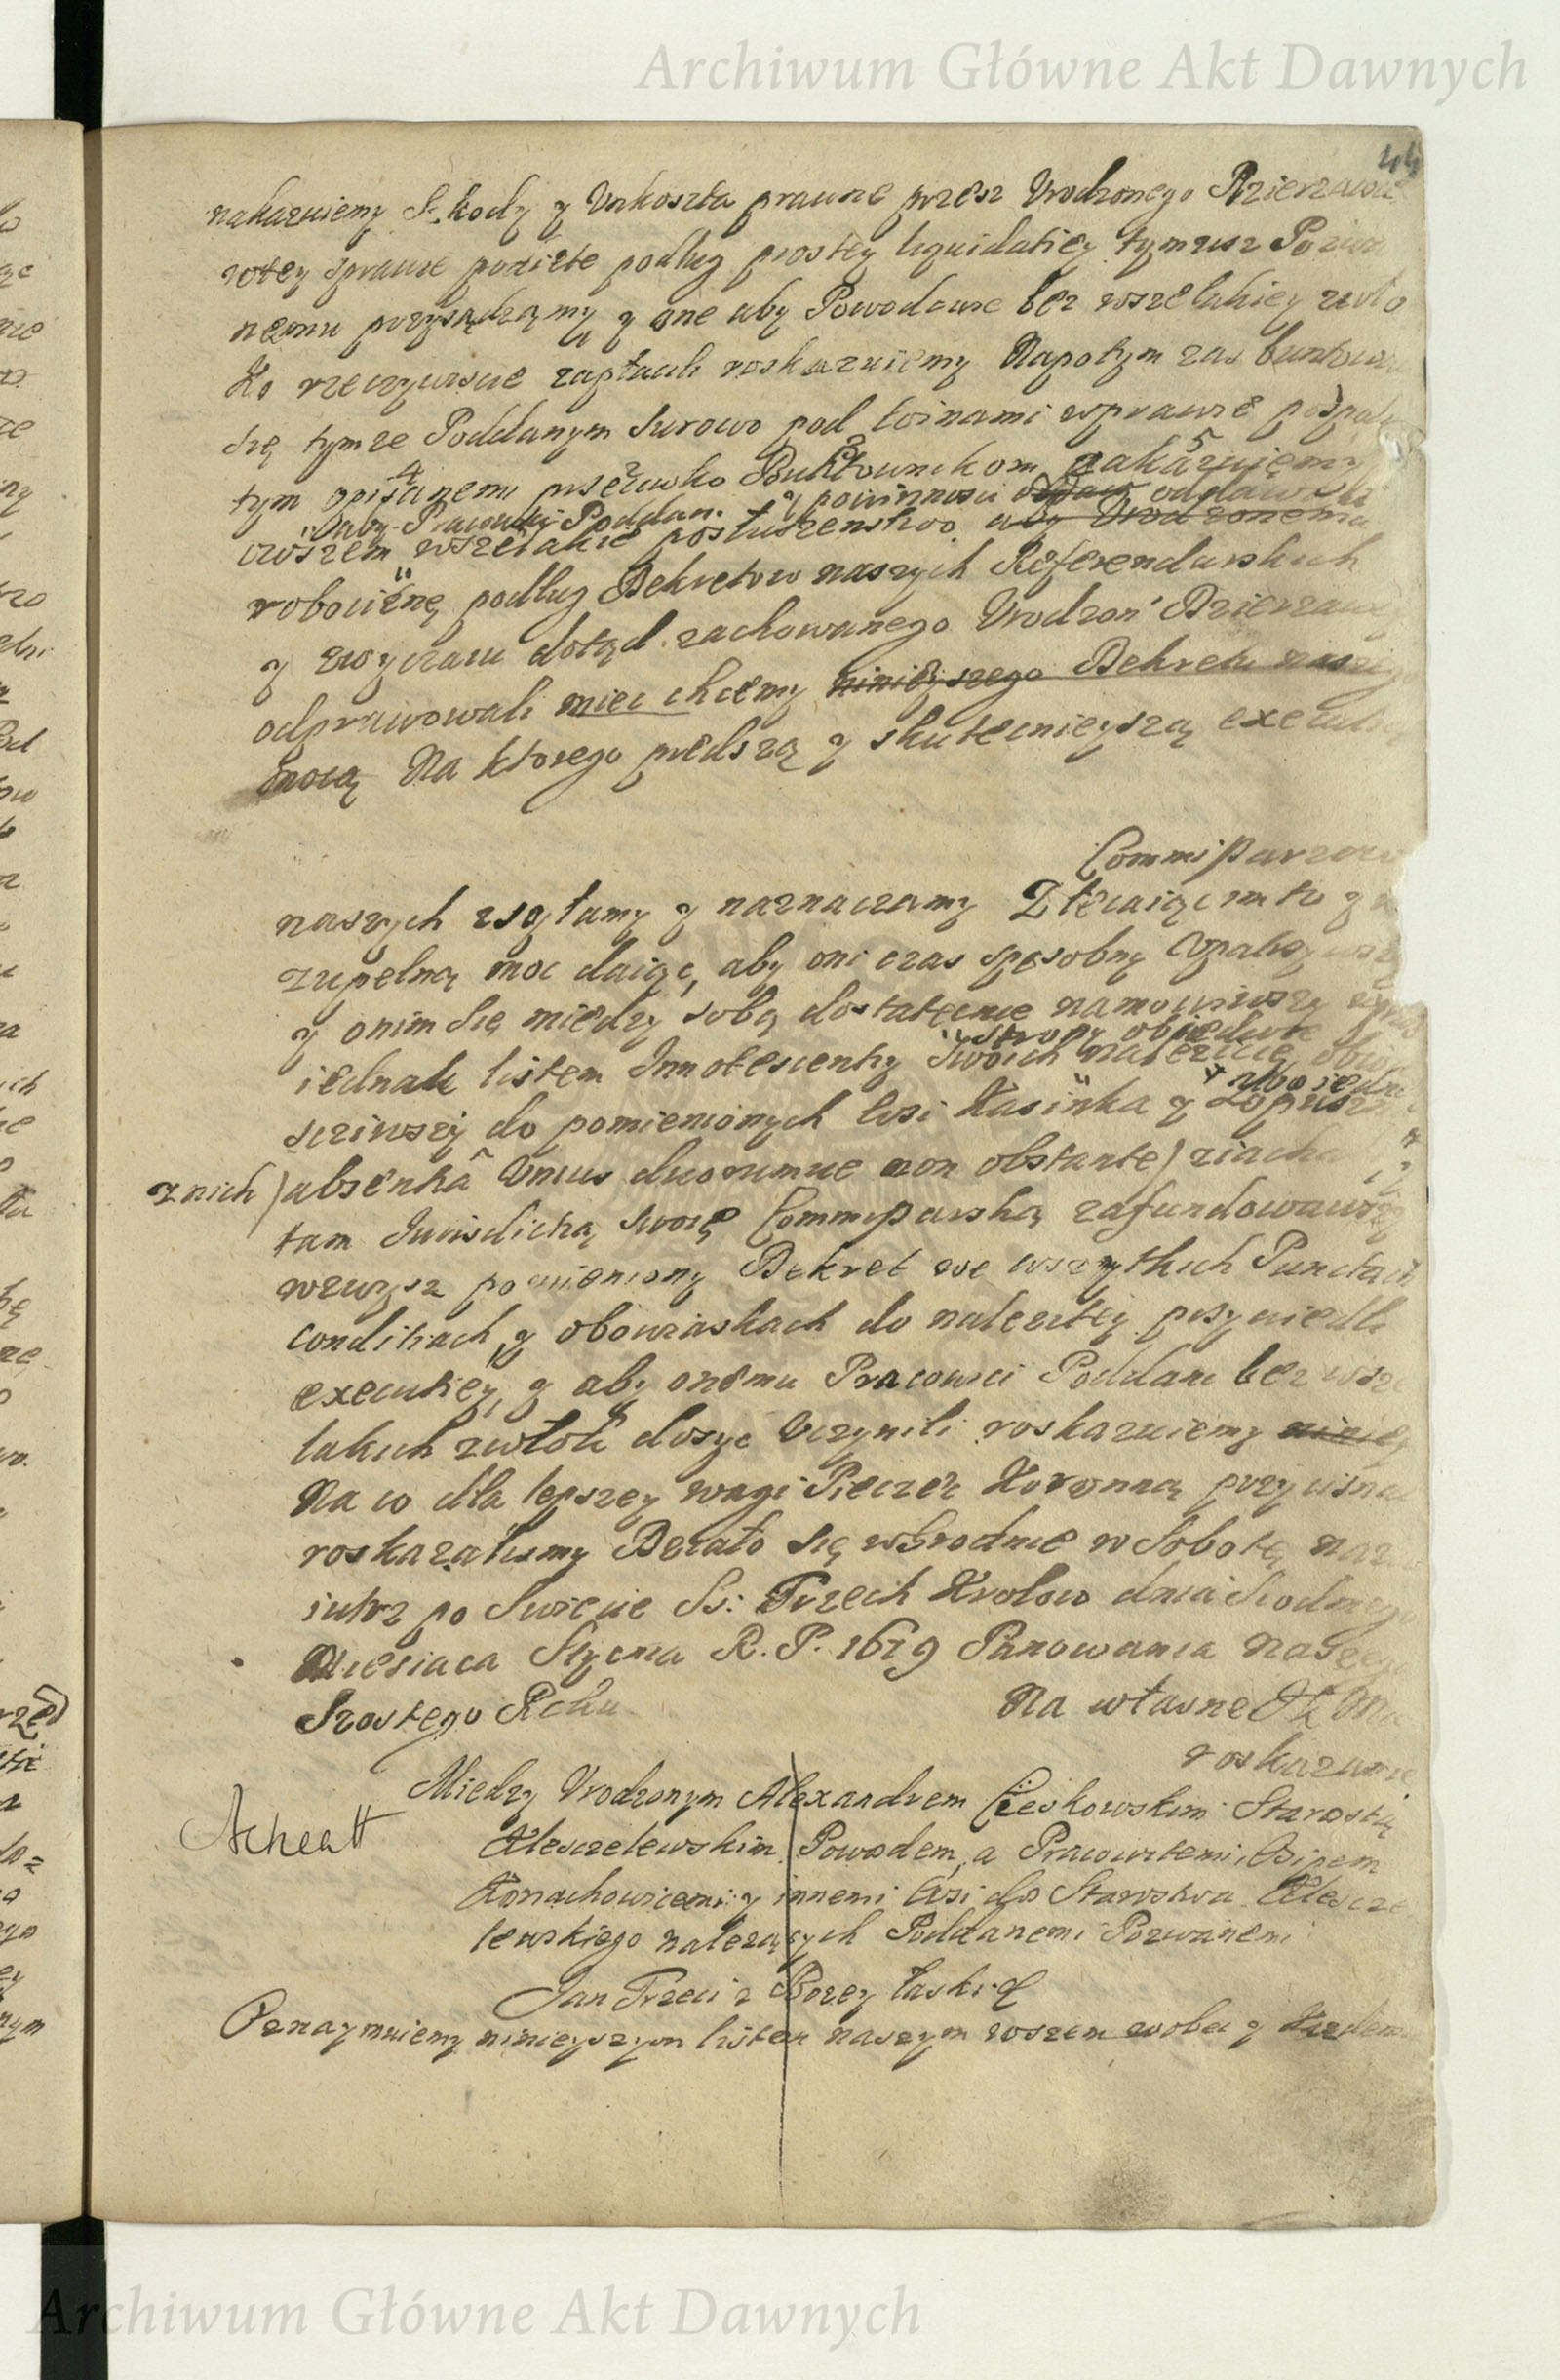 Archiwum Główne Akt Dawnych
44
nakazuiemy Szkody y Vnkoszta prawne przez Vrodzonego Dzierzawcę
wtey sprawie podięte podług prostey liquidatiey tymzesz Pozwa
nemu przysądzamy y one aby Powodowie bez wszelakiey zwło
ki rzeczywiscie zapłacili roskazuiemy Napotym zas buntowac
się tymze Poddanym surowo pod winami wprawie pospoli
tym opisanemi przeciwko Buntownikom zakazuiemy
aby Pracowici Poddani y powinnosci oddawali
owszem wszelakie posłuszenstwo aby Vrodzonemu
robociznę podług Dekretow naszych Referendarskich
y zwyczaiu dotąd zachowanego Vrodzon Dzierzawcy
odprawowali miec chcemy ninieyszego Dekretu naszego
mocą Na ktorego prędszą y skutecnieyszą executią
Commissarzow
naszych zsyłamy y naznaczamy Zlecaiąc im to y
zupełną moc daiąc, aby oni czas sposobny vpatrzywszy
y onim się między sobą dostatecnie namowiwszy
strony obiedwie
iednak listem Innotescenty swoich należycie obwie
albo ieden
sciwszy do pomienionych wsi Kasinka y Lopuszna
z nich) absentiâ vnius duorumue non obstante) ziachali
tam Iurisdictią swoię Commissarską zafundowawszy
wzwysz pomieniony Dekret we wszytkich Punctach
conditiach, y obowiaskach do nalezitey przywiedli
executiey, y aby onemu Pracowici Poddani bez wsze
lakich zwłok dosyc vczynili roskazuiemy niniey
Na co dla lepszey wagi Pieczęć Koronną przycisnąć
roskazalismy Działo się w Grodnie w Sobotę naza
iutrz po Swięcie SS: Trzech Krolow dnia Siodmego
Miesiaca Stycnia R. P. 1679 Panowania Naszego
Szostego Roku
Na własne JK Mci
roskazanie
Acheatt
Miedzy Vrodzonym Alexandrem Cieskowskim Starostą
Klesczelewskim Powodem, a Pracowitemi Osipem
Konachowicemi y innemi wsi do Starostwa Klescze
lewskiego nalezących Poddanemi Pozwanemi
Jan Trzeci z Bozey łaski &
Oznaymuiemy ninieyszym listem naszym wszem wobec y kazdemu
Archiwum Główne Akt Dawnych